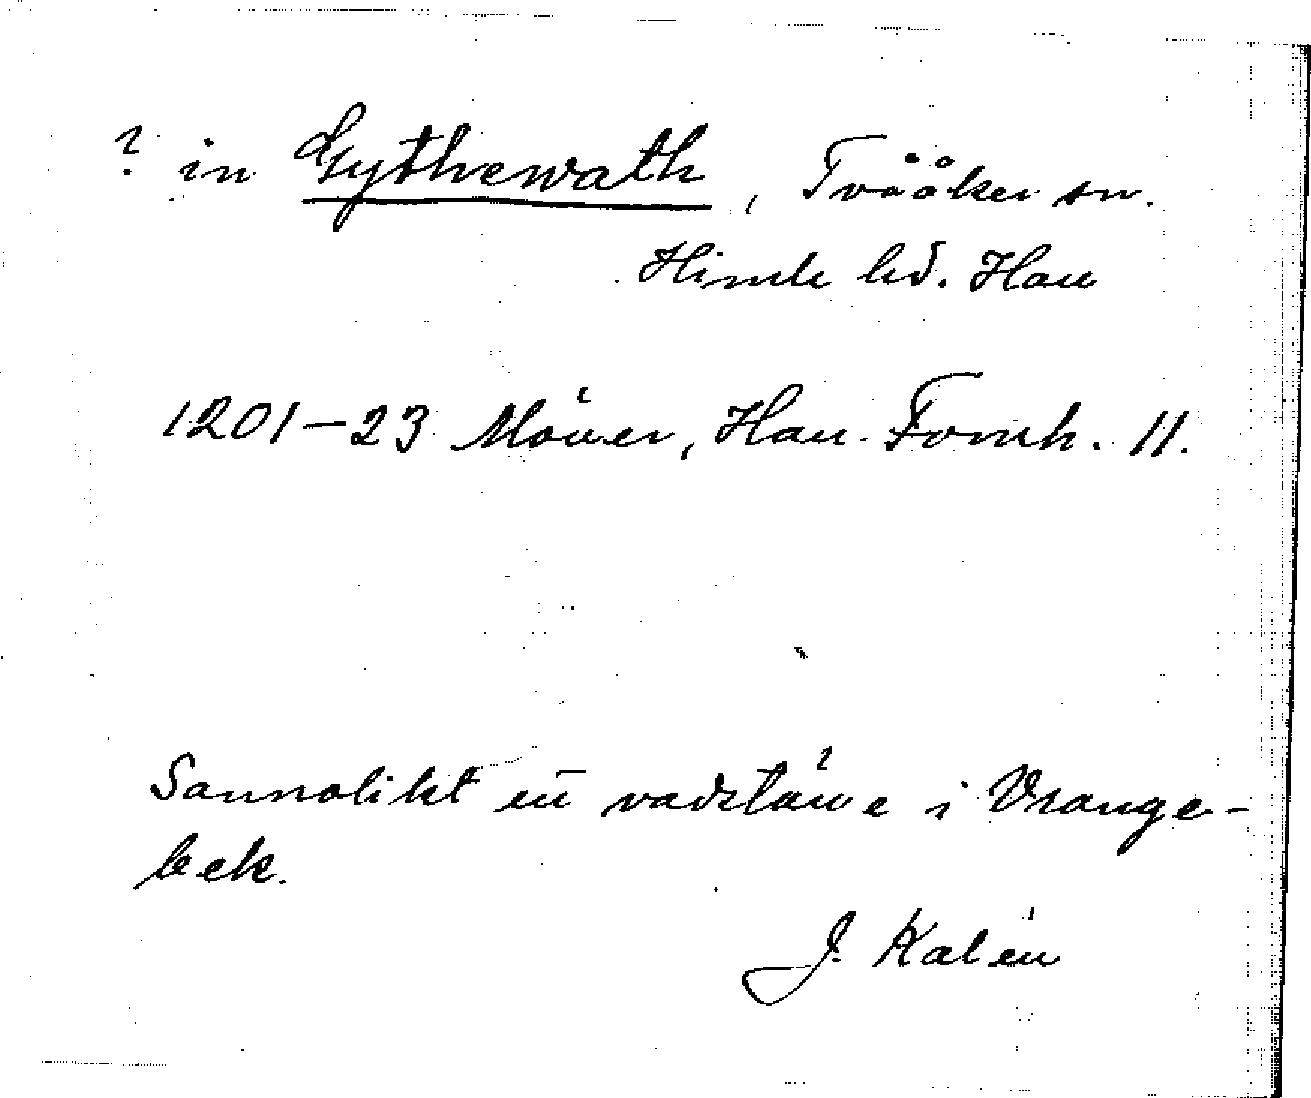 ? in Gythewath, Tvååker sn.
Himle hd. Hall
1201-23 Möller, Hall. Fornh. 11.
Sannolikt ett vadställe i Vrange-
bek.
J. Kalén